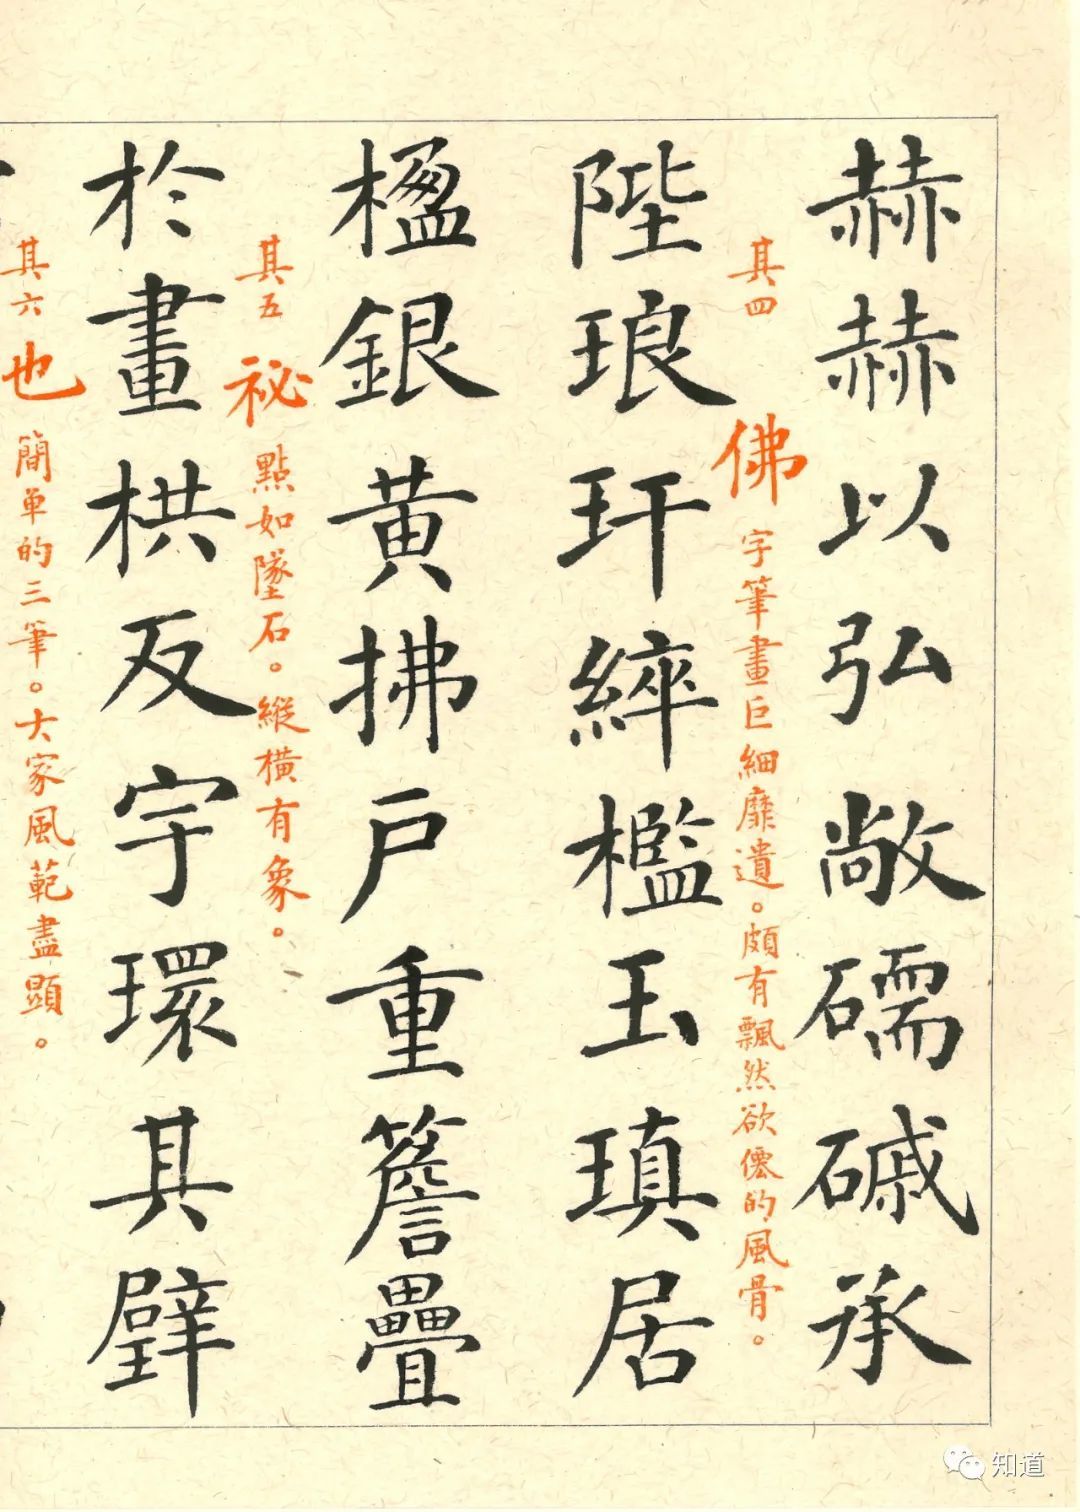 赫赫以弘敞礝磩承
其四 佛 字筆畫巨細靡遺。頗有飄然欲僊的風骨。
陛琅玕綷檻玉瑱居
楹銀黄拂戶重簷疊
其五 祕 點如墜石。縱橫有象。
於畫栱反宇環其壁
其六 也 簡单的三筆。大家風範盡顯。
知道